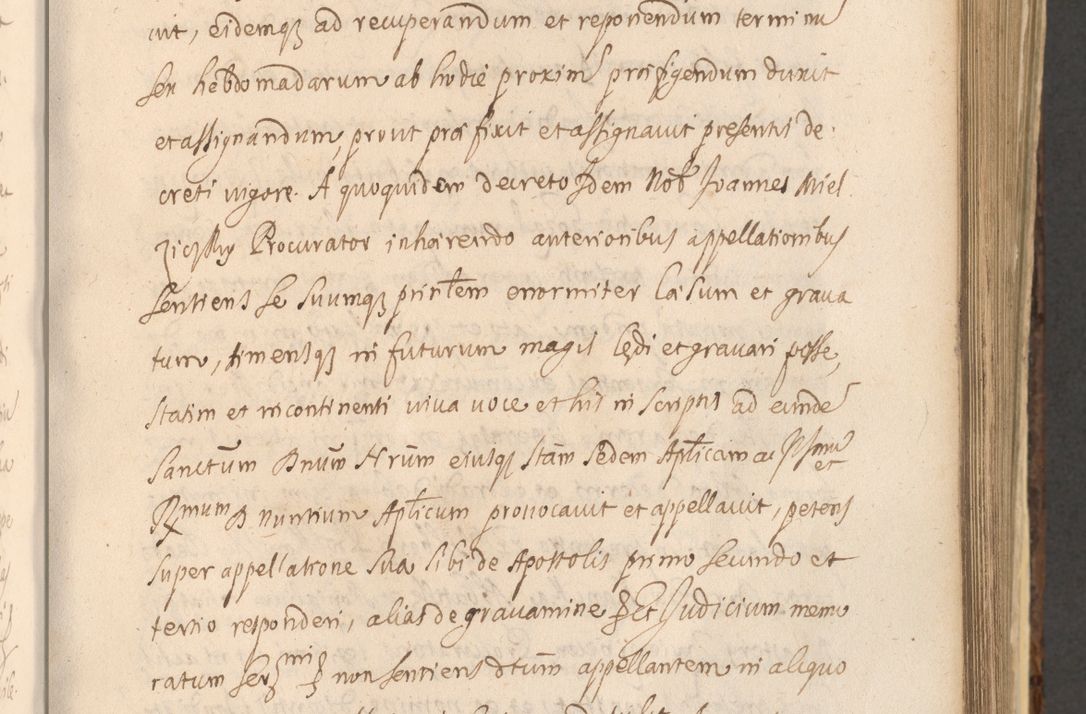 uit, eidemqꝫ ad recuperandum et reponendum terminū
sex hebdomadarum ab hodie proximē præfigendum duxit
et assignandum, prout præfixit et assignavit presentis de-
creti vigore. A quoquidem decreto Idem Nob. Joannes Miel
Procurator inhærendo anterioribus appellationibus
sentiens se suumqꝫ prin̄lem enormiter læsum et grava
tum, timensqꝫ in futurum magis lędi et gravari posse,
statim et incontinenti viva voce et his in scriptis ad eundē
Sanctum Dnūm Nrūm eiusqꝫ stām sedem Aplīcam ac Illsmū et
Rmum D Nuntium Aplīcum provocavit et appellavit, petens
super appellatione sua sibi de Apostolis primo secundo et
tertio responderi, alias de gravamine Et Judicium memo
ratum non sentiens dtūm appellantem in aliquo